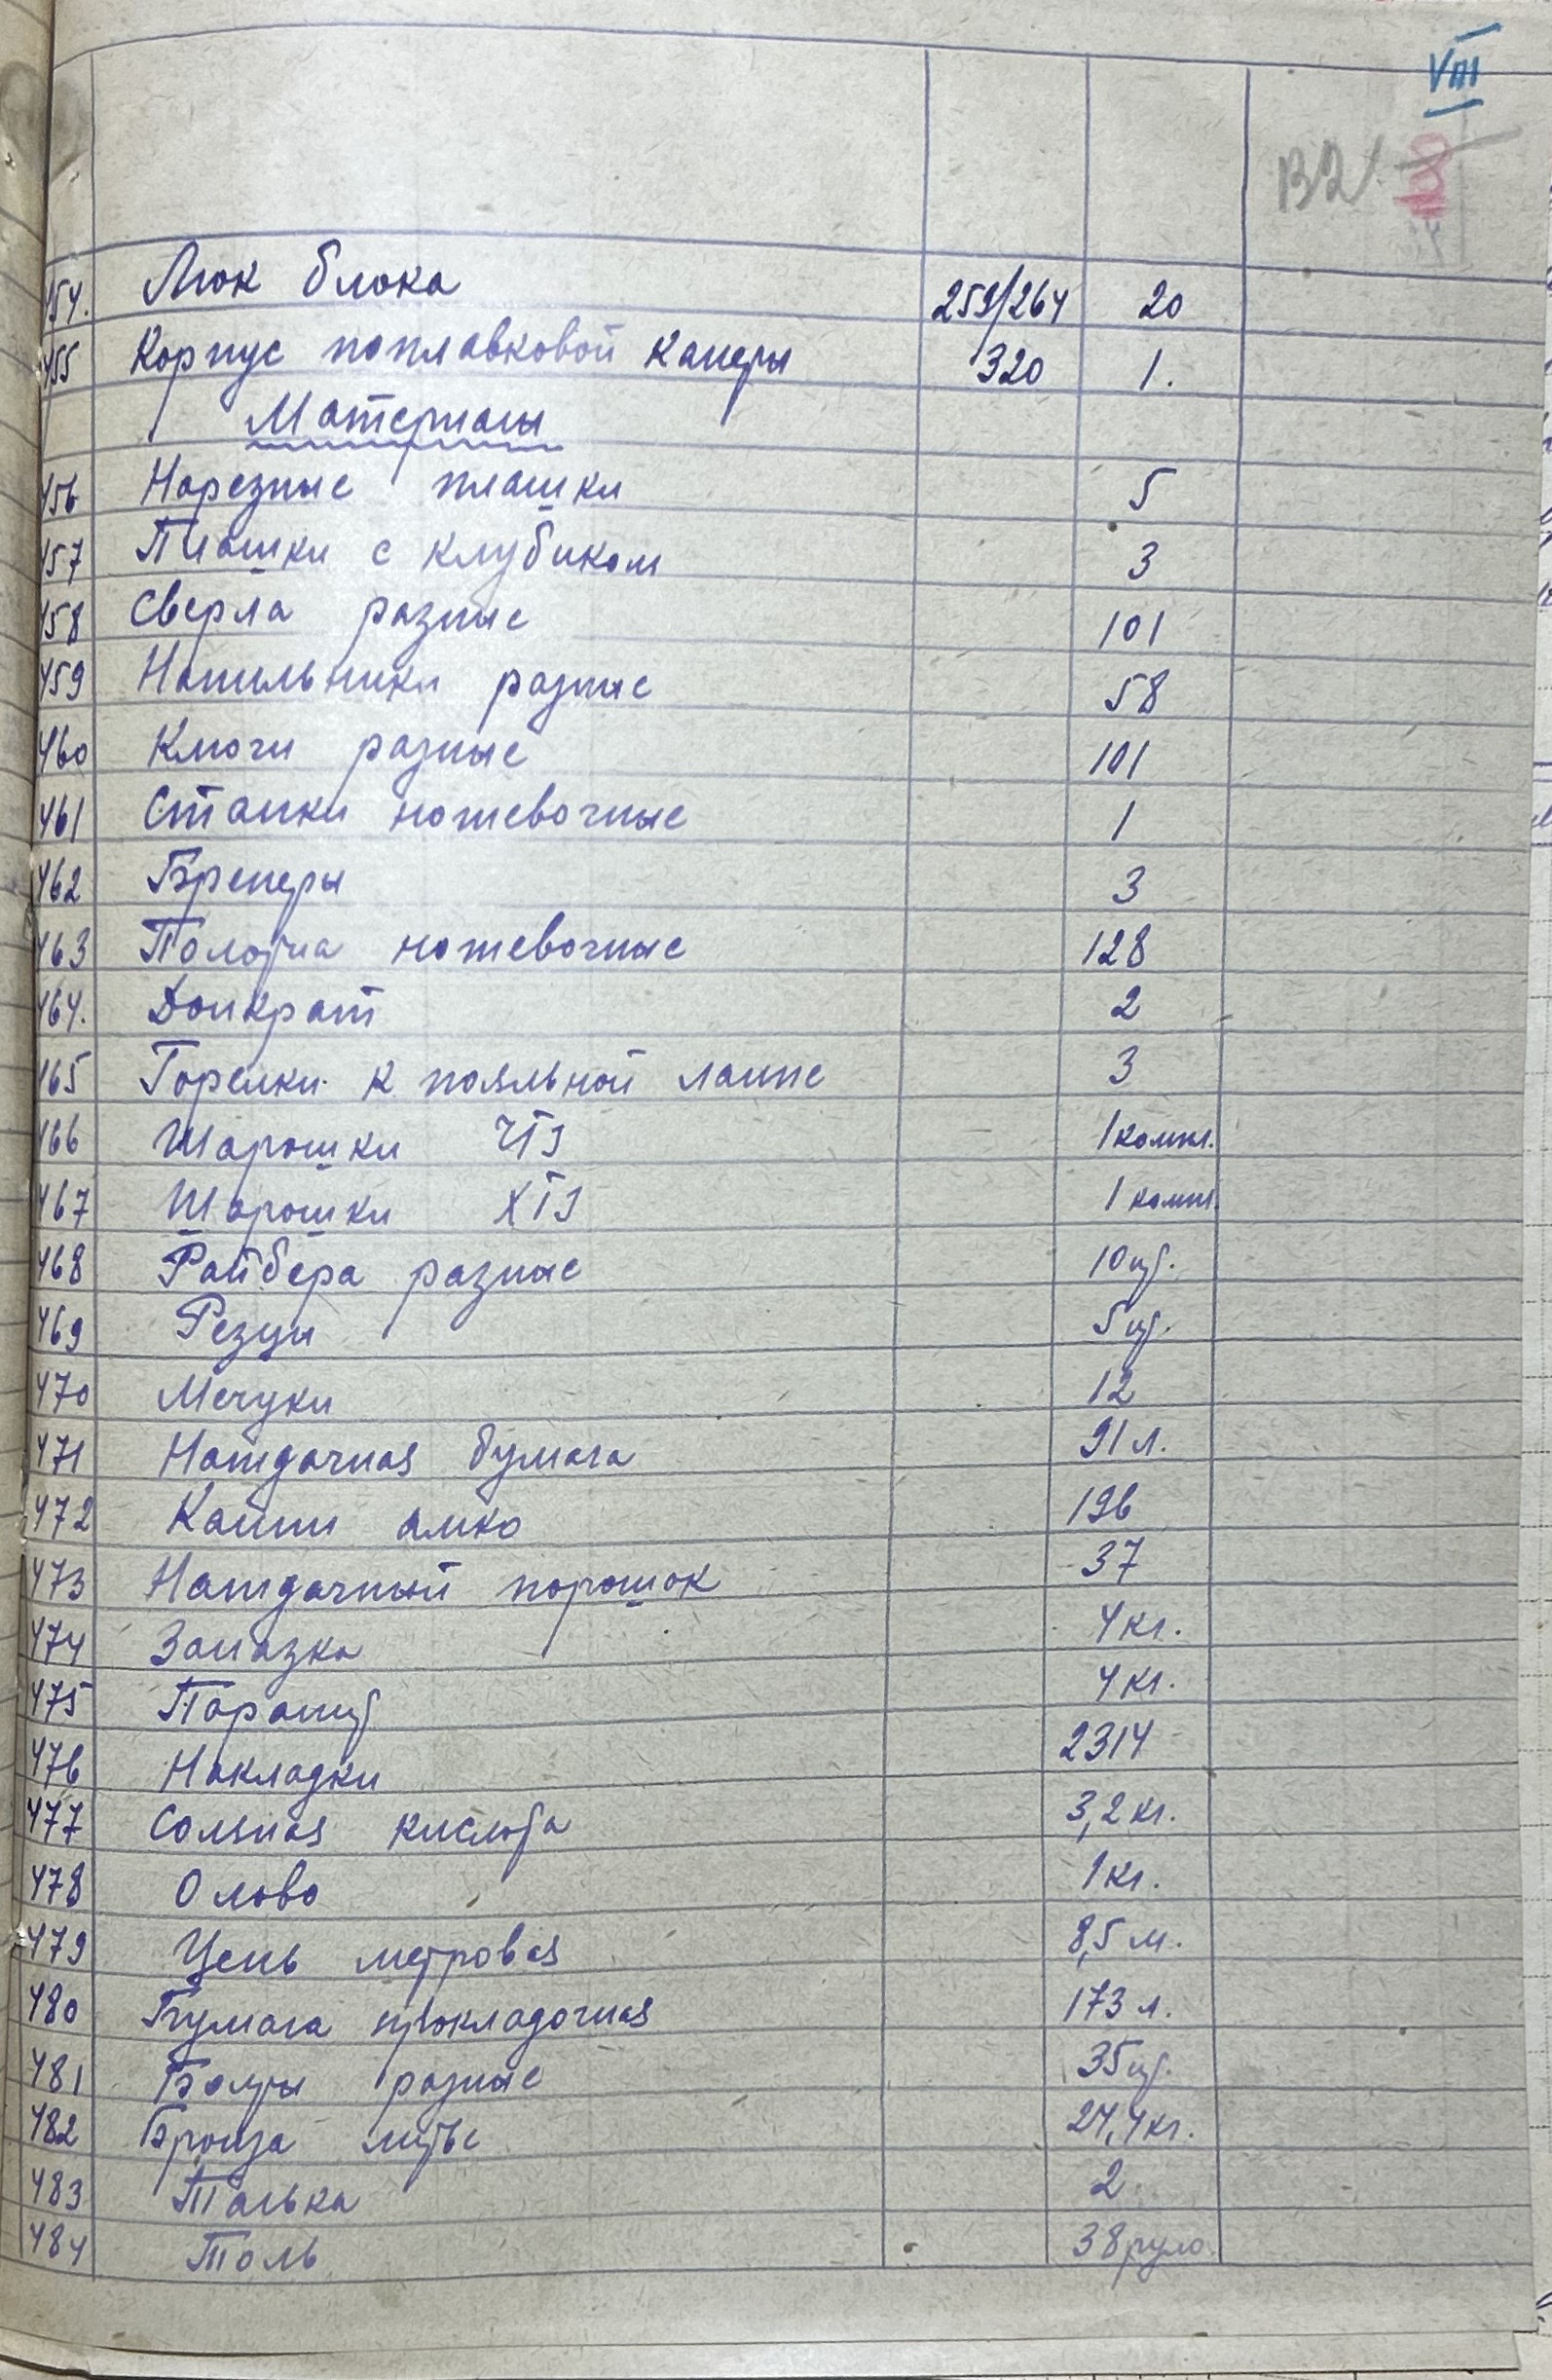 VIII
132
454. Люк блока 259/264 20
455 Корпус поплавковой камеры 320 1.
Материалы
456 Нарезные плашки 5
457 Плашки с клубиком 3
458 Сверла разные 101
459 Напильники разные 58
460 Ключи разные 101
461 Станки ножевочные 1
462 3
463 Полотна ножевочные 128
464. Домкрат 2
465 Горелки к паяльной лампе 3
466 Шарошки ЧТЗ 1 компл.
467 Шарошки ХТЗ 1 компл.
468 Райбера разные 10 шт.
469 Резцы 5 шт.
470 Мечуки 12
471 Наждачная бумага 91 л.
472 196
473 Наждачный порошок 37
474 Замазка 4 кг.
475 4 кг.
476 Накладки 2314
477 Соляная кислота 3,2 кг.
478 Олово 1 кг.
479 Цепь метровая 8,5 м.
480 Бумага прокладочная 173 л.
481 Болты разные 35 шт.
482 Бронза литье 24,4 кг.
483 Талька 2
484 Толь 38 руло